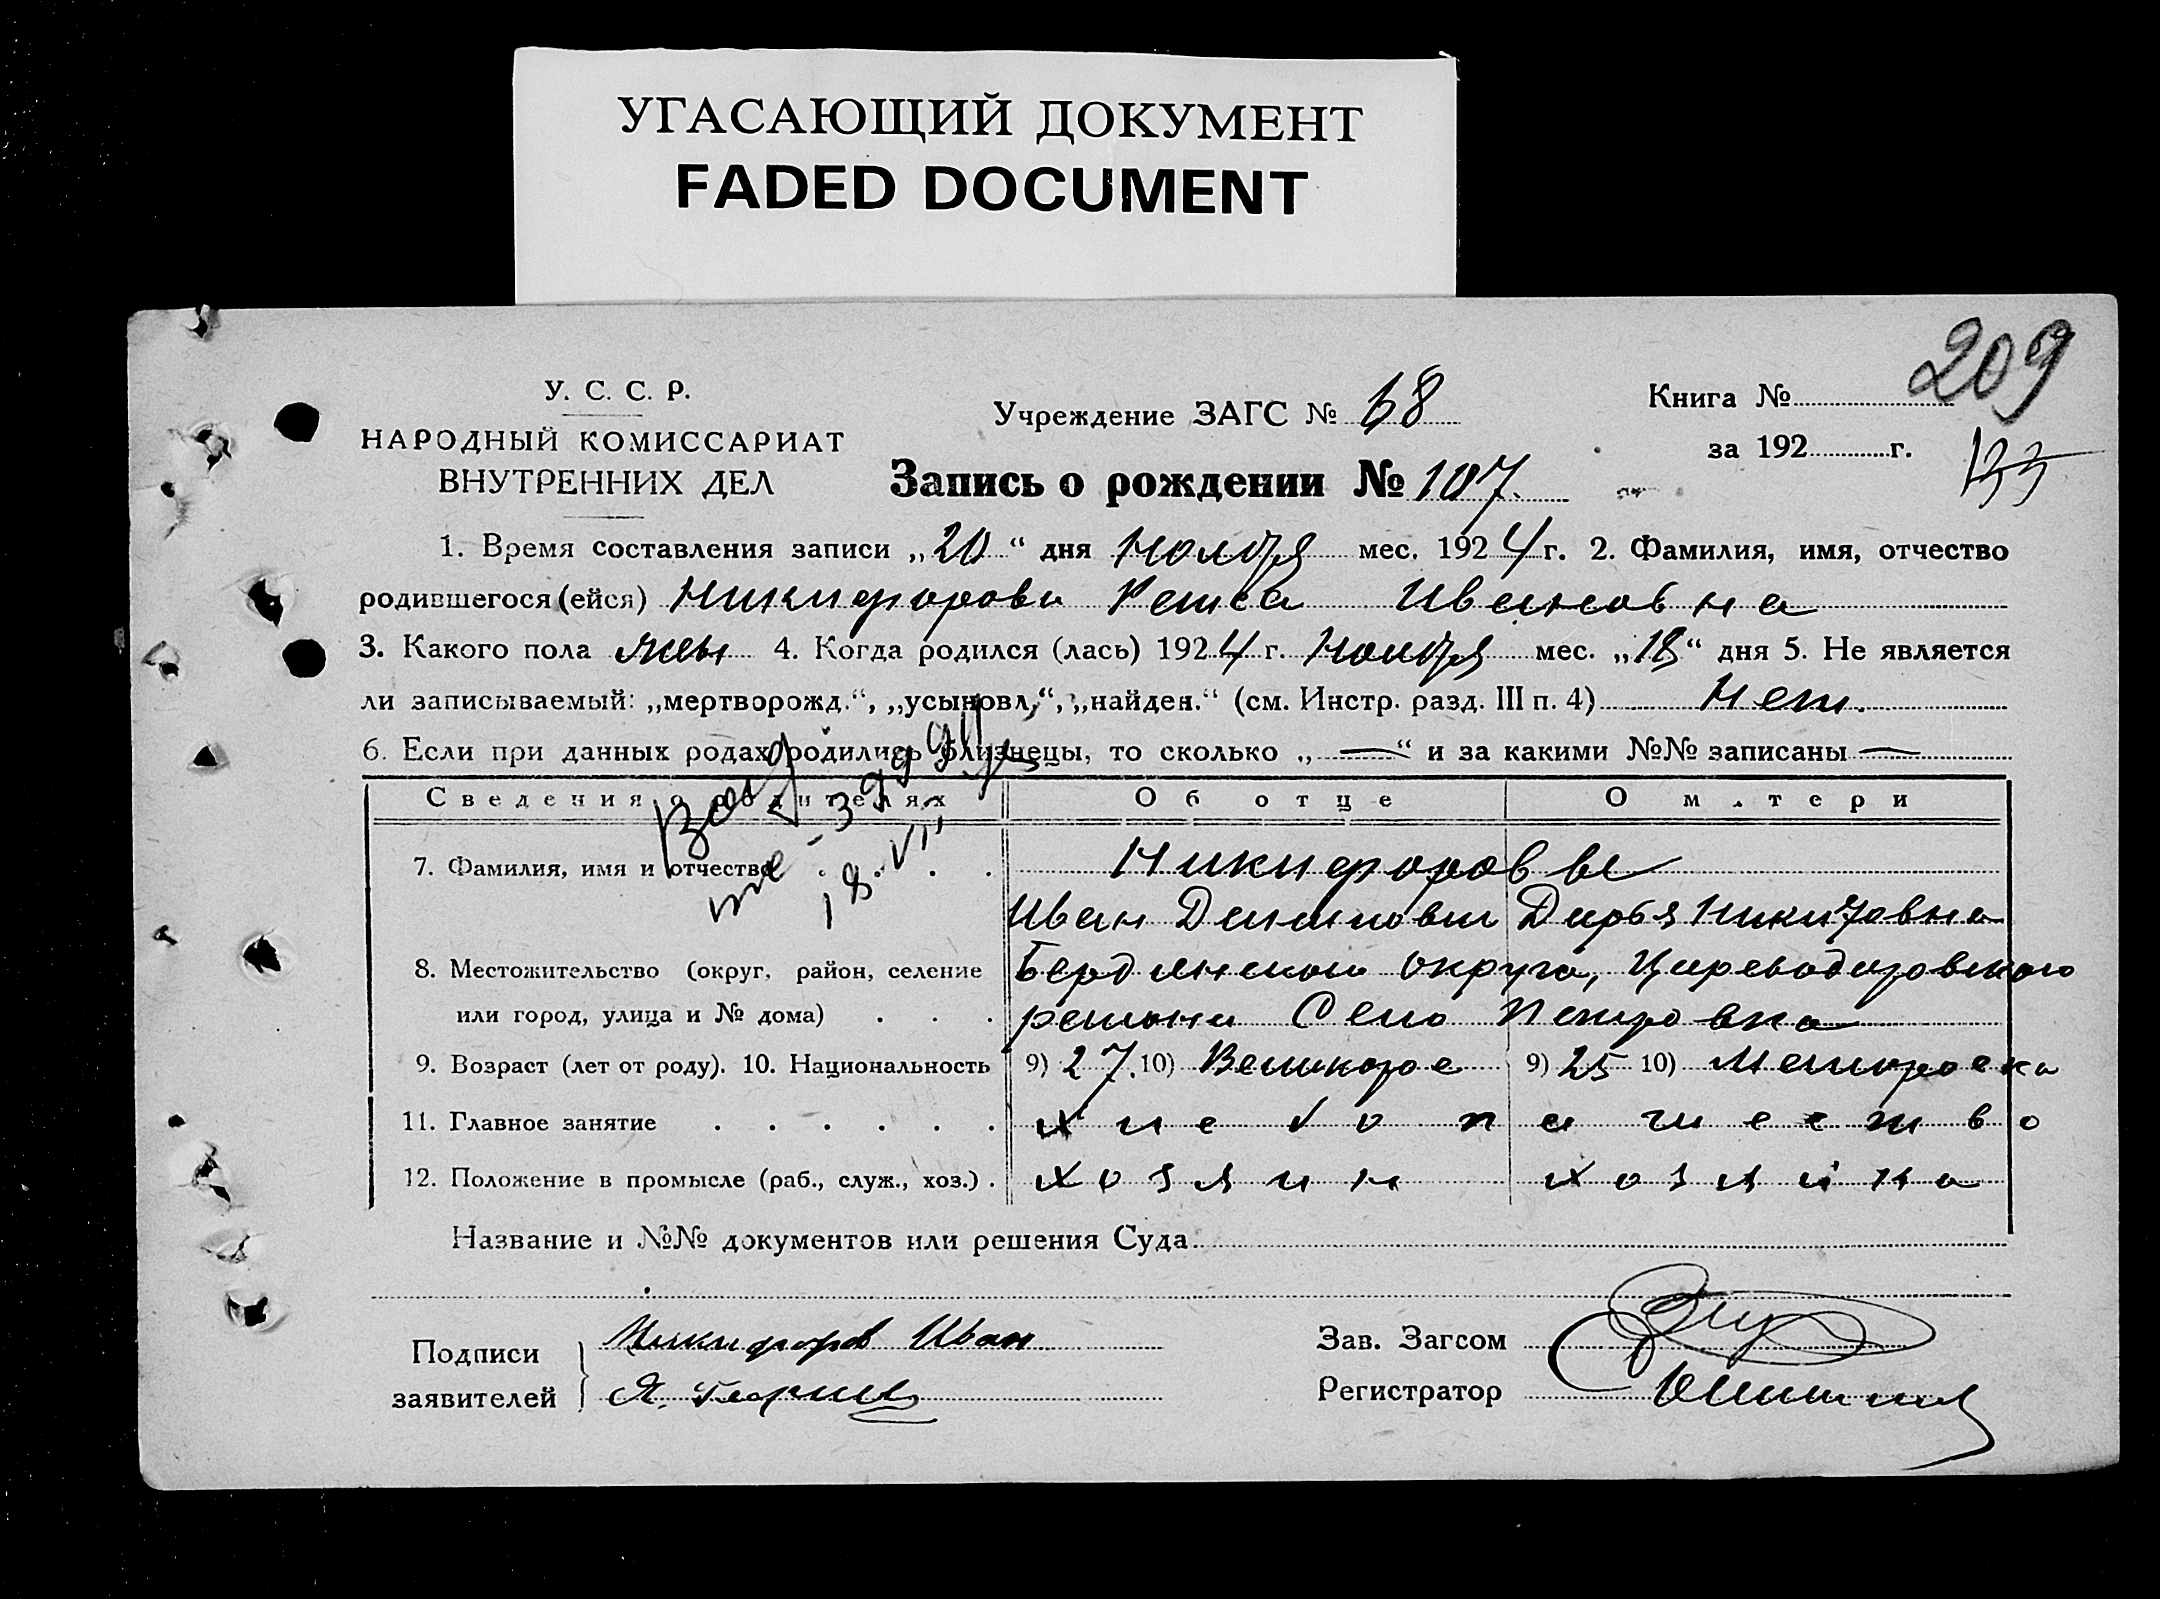 УГАСАЮЩИЙ ДОКУМЕНТ
FADED DOCUMENT
209
У. С. С. Р.
НАРОДНЫЙ КОМИССАРИАТ
ВНУТРЕННИХ ДЕЛ
Учреждение ЗАГС № 68
Книга №
за 192 г.
133
Запись о рождении № 107.
1. Время составления записи „20“ дня Ноября мес. 1924 г. 2. Фамилия, имя, отчество
родившегося (ейся) Никифорова Раиса Ивановна
3. Какого пола жен 4. Когда родился (лась) 1924 г. Ноября мес. „18“ дня 5. Не является
ли записываемый: „мертворожд.“, „усыновл.“, „найден.“ (см. Инстр. разд. III п. 4) Нет.
6. Если при данных родах родились близнецы, то сколько „—“ и за какими №№ записаны —
Сведения о родителях Об отце О матери
7. Фамилия, имя и отчество . . . . Никифоровы
18.VII
Иван Дарья Никитовна
8. Местожительство (округ, район, селение Бердянского округа,
или город, улица и № дома) . . . района Село Петровка
9. Возраст (лет от роду). 10. Национальность 9) 27. 10) Великорос 9) 25 10)
11. Главное занятие . . . . . . хлебопашество
12. Положение в промысле (раб., служ., хоз.) . хозяин хозяйка
Название и №№ документов или решения Суда
Подписи заявителей Никифоров Иван
Зав. Загсом
Регистратор